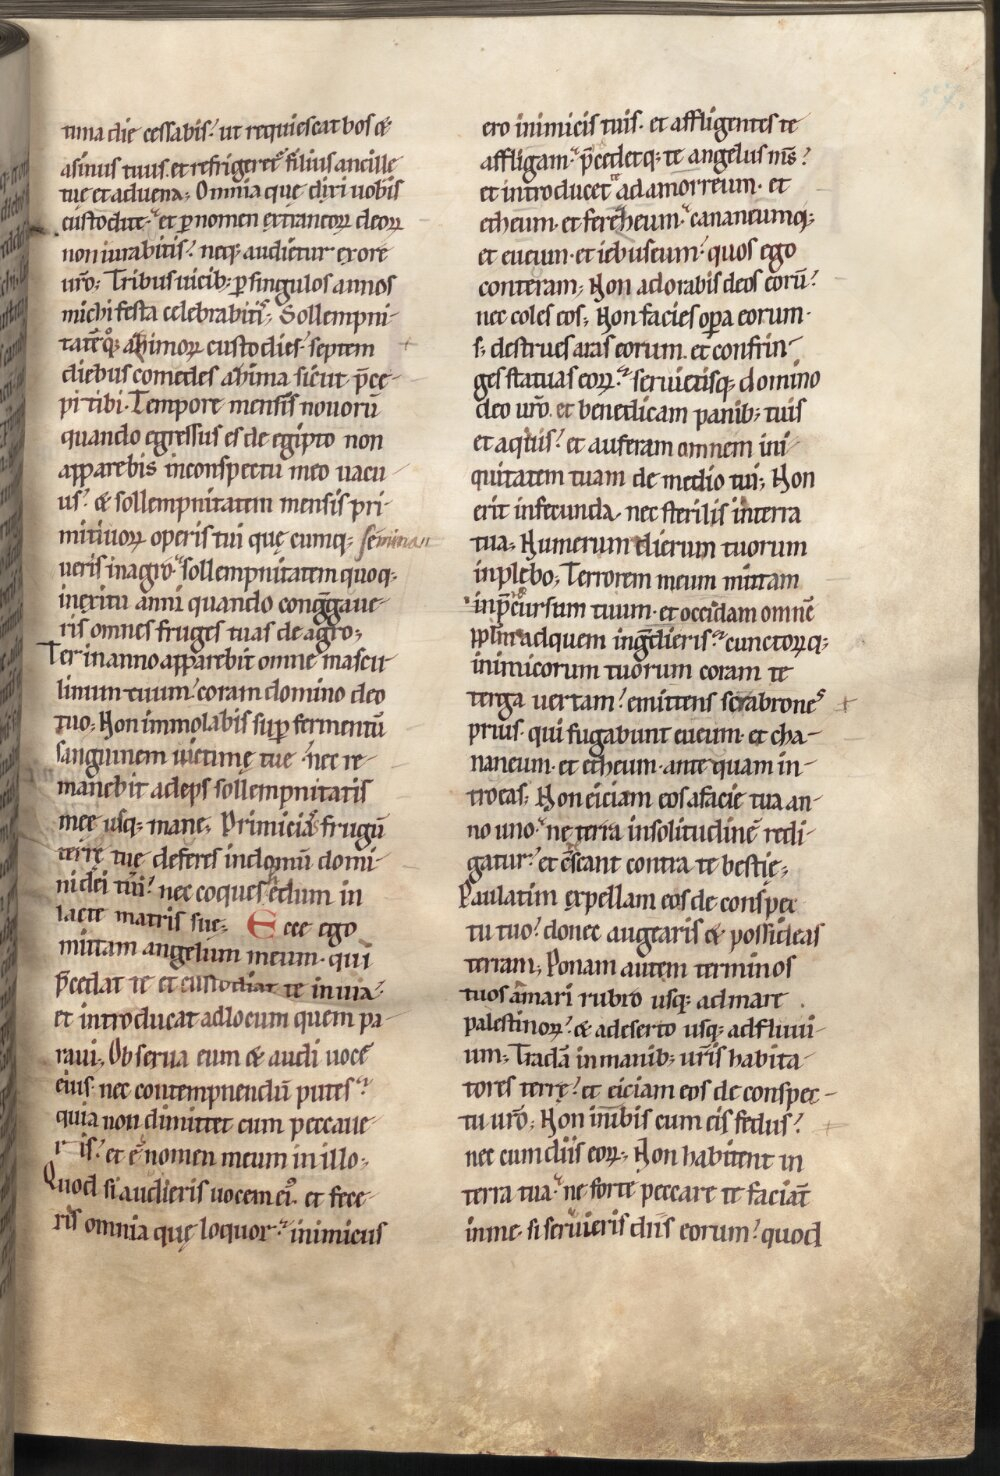 tima die cessabis. ut requiescat bos &
asinus tuus. et refrigeret᷑ filius ancille
tuę et aduena; Omnia que dixi uobis
custodite. et ꝑ nomen extraneoꝝ deoꝝ
non iurabitis. neq; audietur ex ore
ur̅o; Tribus uicib; ꝑ singulos annos
michi festa celebrabitis; Sollempni-
tate̅ azimoꝝ custodies. septem
diebus comedes azima sicut p̅ce-
pi tibi. Tempore mensis nouoru̅
quando egressus es de egipto non
apparebis in conspectu meo uacu-
us. & sollempnitatem mensis pri-
mitiuoꝝ operis tui quę cumq; seminau
ueris in agro. sollempnitatem quoq;
in exitu anni quando congregaue-
ris omnes fruges tuas de agro;
Ter in anno apparebit omne mascu-
linum tuum. coram domino deo
tuo; Non immolabis suꝑ fermentu̅
sanguinem uictimę tuę. nec re-
manebit adeps sollempnitatis
meę usq; mane; Primicias frugu̅
terrę tuę deferes in domu̅ domi-
ni dei tui. nec coques edum in
lacte matris suę; Ecce ego
mittam angelum meum. qui
p̅cedat te et custodiat te in uia.
et introducat ad locum quem pa-
raui; Obserua eum & audi uoce̅
eius. nec contempnendu̅ putes.
quia non dimittet cum peccaue-
ris. et e̅ nomen meum in illo;
Quod si audieris uocem ei᷒. et fece-
ris omnia quę loquor. inimicus
ero inimicis tuis. et affligentes te
affligam. p̅cedetq; te angelus m̅s.
et introducet te ad amorreum. et
etheum. et ferezeum. cananeumq;
et eueum. et iebuseum. quos ego
conteram; Non adorabis deos eoru̅.
nec coles eos; Non facies oꝑa eorum.
s; destrues aras eorum. et confrin-
ges statuas eoꝝ. seruietisq; domino
deo ur̅o. et benedicam panib; tuis
et aquis. et auferam omnem ini-
quitatem tuam de medio tui; Non
erit infecunda. nec sterilis in terra
tua; Numerum dierum tuorum
inplebo; Terrorem meum mittam
in p̅cursum tuum. et occidam omne̅
pplm̅ ad quem ing̅dieris. cunctoꝝq;
inimicorum tuorum coram te
terga uertam. emittens scrabrones
prius. qui fugabunt eueum. et cha-
naneum. et etheum. ante quam in-
troeas; Non eiciam eos a facie tua an-
no uno. ne terra in solitudine̅ redi-
gatur. et cr̅escant contra te bestię;
Paulatim expellam eos de conspec
tu tuo. donec augearis & possideas
terram; Ponam autem terminos
tuos a mari rubro usq; ad mare
palestinoꝝ. & a deserto usq; ad fluui-
um; Trada̅ in manib; ur̅is habita-
tores terrę. et eiciam eos de conspec-
tu ur̅o; Non inibis cum eis fedus.
nec cum diis eoꝝ; Non habitent in
terra tua. ne forte peccare te facia̅t
in me. si seruieris diis eorum. quod